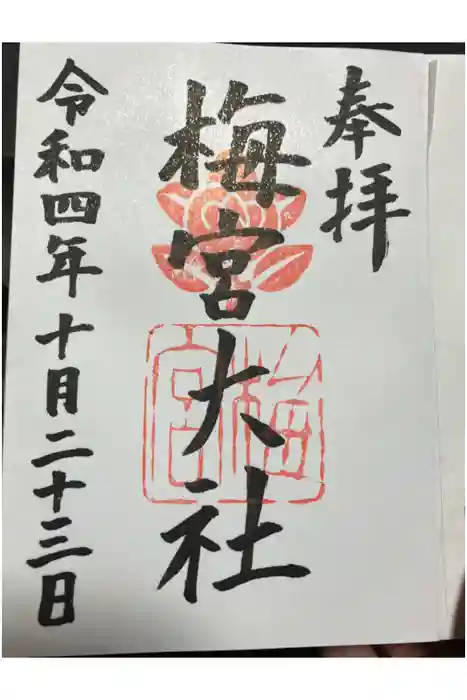 奉拝
梅宮大社
梅宮
令和四年十月二十三日